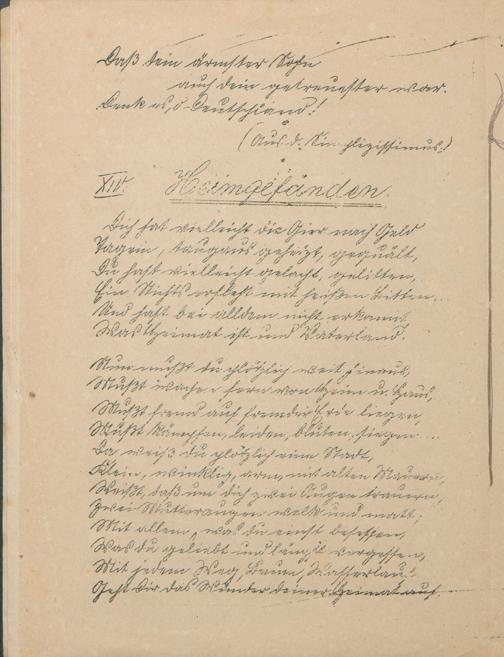 Daß dein ärmster Sohn
auch dein getreuester war.
Denk es, o Deutschland!
(Aus d. Simplizissimus.)
XIV. Heimgefunden.
Dich hat vielleicht die Gier nach Geld
Tagein, tagaus gehetzt, gequält,
Du hast vielleicht gelacht, gelitten,
Ein Nichts erfleht mit heißen Bitten..
Und hast bei alldem nicht erkannt
Was Heimat ist und Vaterland.
Nun mußt du plötzlich weit hinaus,
Mußt wachen fern von Heim u. Haus,
Mußt fremd auf fremder Erde liegen,
Mußt kämpfen, leiden, bluten, siegen ...
Da weißt du plötzlich eine Stadt,
Klein, winklig, arm, mit alten Mauern,
Weißt, daß um dich zwei Augen trauern,
Zwei Mutteraugen welk und matt;
Mit allem, was du einst besessen,
Was du geliebt und längst vergessen,
Mit jedem Weg, Baum, Wasserlauf
Geht dir das Wunder deiner Heimat auf.